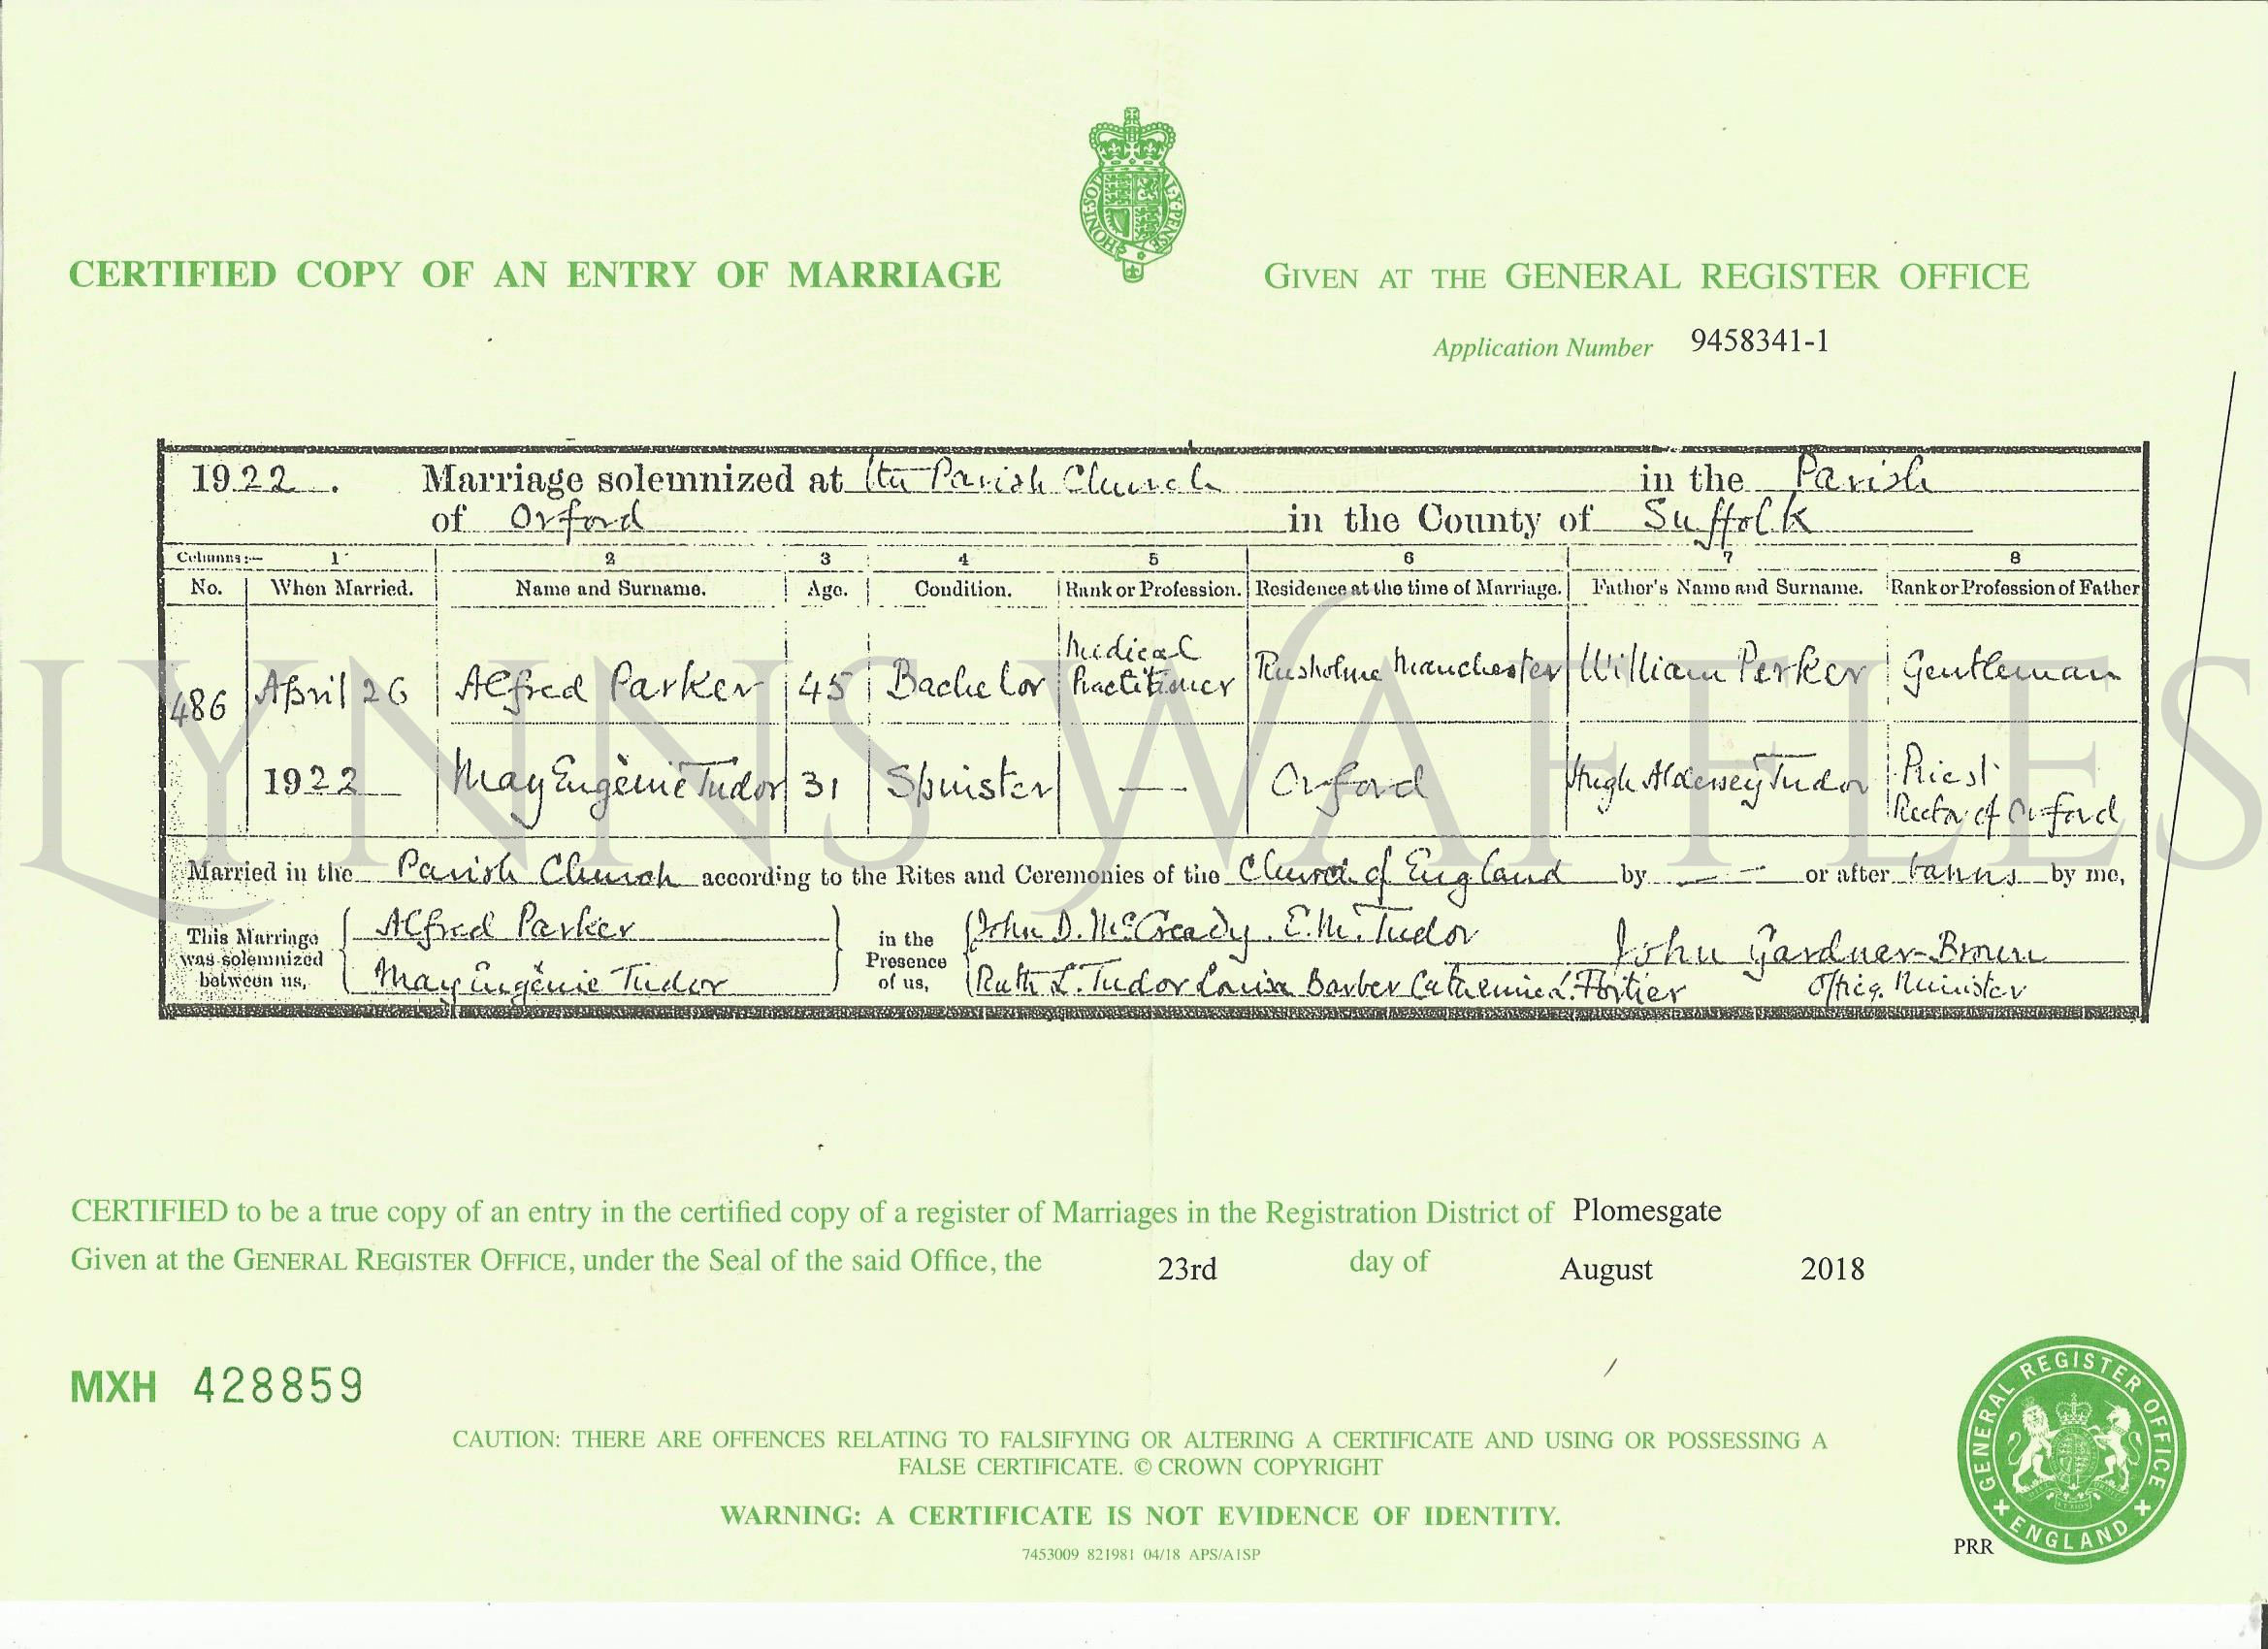 HONI SOI AL Y PENSE
CERTIFIED COPY OF AN ENTRY OF MARRIAGE
GIVEN AT THE GENERAL REGISTER OFFICE
Application Number 9458341-1
1922. Marriage solemnized at the Parish Church in the Parish
of Orford in the County of Suffolk
Columns:— 1 2 3 4 5 6 7 8
No. When Married. Name and Surname. Age. Condition. Rank or Profession. Residence at the time of Marriage. Father's Name and Surname. Rank or Profession of Father
486 April 26 Alfred Parker 45 Bachelor Medical Practitioner Rusholme Manchester William Parker Gentleman
1922 May Eugènie Tudor 31 Spinster —- Orford Hugh Aldersey Tudor Priest
Rector of Orford
LYNNS WAFFLES
Married in the Parish Church according to the Rites and Ceremonies of the Church of England by — — or after banns by me,
This Marriage was solemnized between us, Alfred Parker
May Eugènie Tudor
in the Presence of us, John D. McCready. E.M. Tudor
Ruth L. Tudor Louisa Barber Catherine L. Fortier
John Gardner-Brown
Officg. Minister
CERTIFIED to be a true copy of an entry in the certified copy of a register of Marriages in the Registration District of Plomesgate
Given at the GENERAL REGISTER OFFICE, under the Seal of the said Office, the 23rd day of August 2018
MXH 428859
CAUTION: THERE ARE OFFENCES RELATING TO FALSIFYING OR ALTERING A CERTIFICATE AND USING OR POSSESSING A
FALSE CERTIFICATE. © CROWN COPYRIGHT
WARNING: A CERTIFICATE IS NOT EVIDENCE OF IDENTITY.
7453009 821981 04/18 APS/A1SP
PRR
GENERAL REGISTER OFFICE
ENGLAND